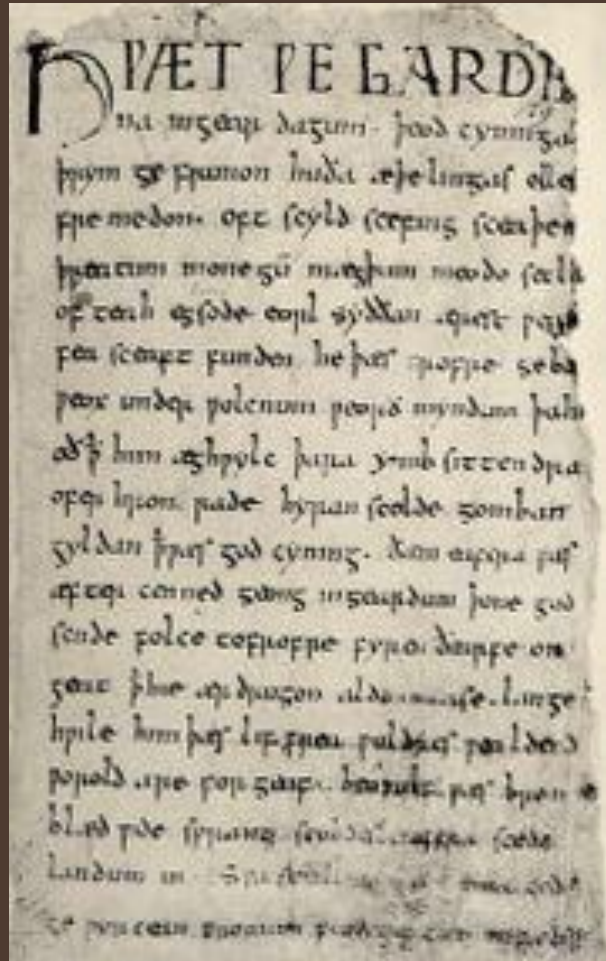 HǷÆT ǷE GARDE
na ingear dagum. þeod cyninga
þrym ge frunon huða æþelingas elle
fremedon. oft scyld scefing sceaþe
þreatum monegū mægþum meodo setla
of teah egsode eorl syððan ærest ƿear
fea sceaft funden he þæs frofre geba
ƿeox under ƿolcnum ƿeorð myndum þah
oð ꝥ him æghƿylc þara ymb sittendra
ofer hron rade hyran scolde gomban
gyldan ꝥ ƿæs god cyning. ðæm eafera ƿæs
æfter cenned geong ingeardum þone god
sende folce tofrofre fyren ðearfe on
geat ꝥ hie ær drugon aldor ase. lange
hƿile him þæs lif frea ƿuldres ƿealdend
ƿorold are forgeaf. beoƿulf ƿæs breme
blæd ƿide sprang scyldes eafera scede
landum in